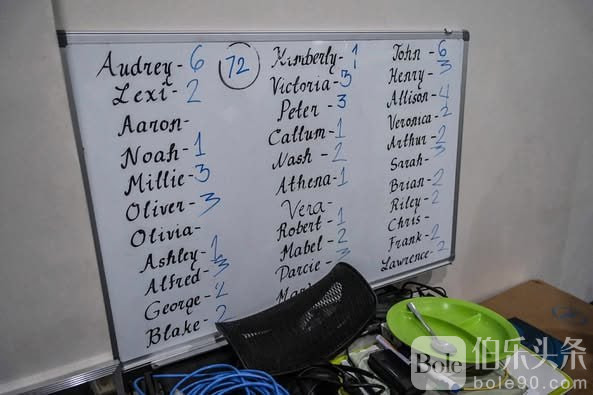 Audrey - 6
Lexi - 2
Aaron -
Noah - 1
Millie - 3
Oliver - 3
Olivia -
Ashley - 1
Alfred - 3
George - 2
Blake - 2
72
Kimberly - 1
Victoria - 3
Peter - 3
Callum - 1
Nash - 2
Athena - 1
Vera -
Robert - 1
Mabel - 2
Darcie - 3
John - 6
Henry - 3
Allison - 4
Veronica - 2
Arthur - 2
Sarah - 3
Brian - 2
Riley - 2
Chris -
Frank - 2
Lawrence - 2
Bole 伯乐头条
bole90.com